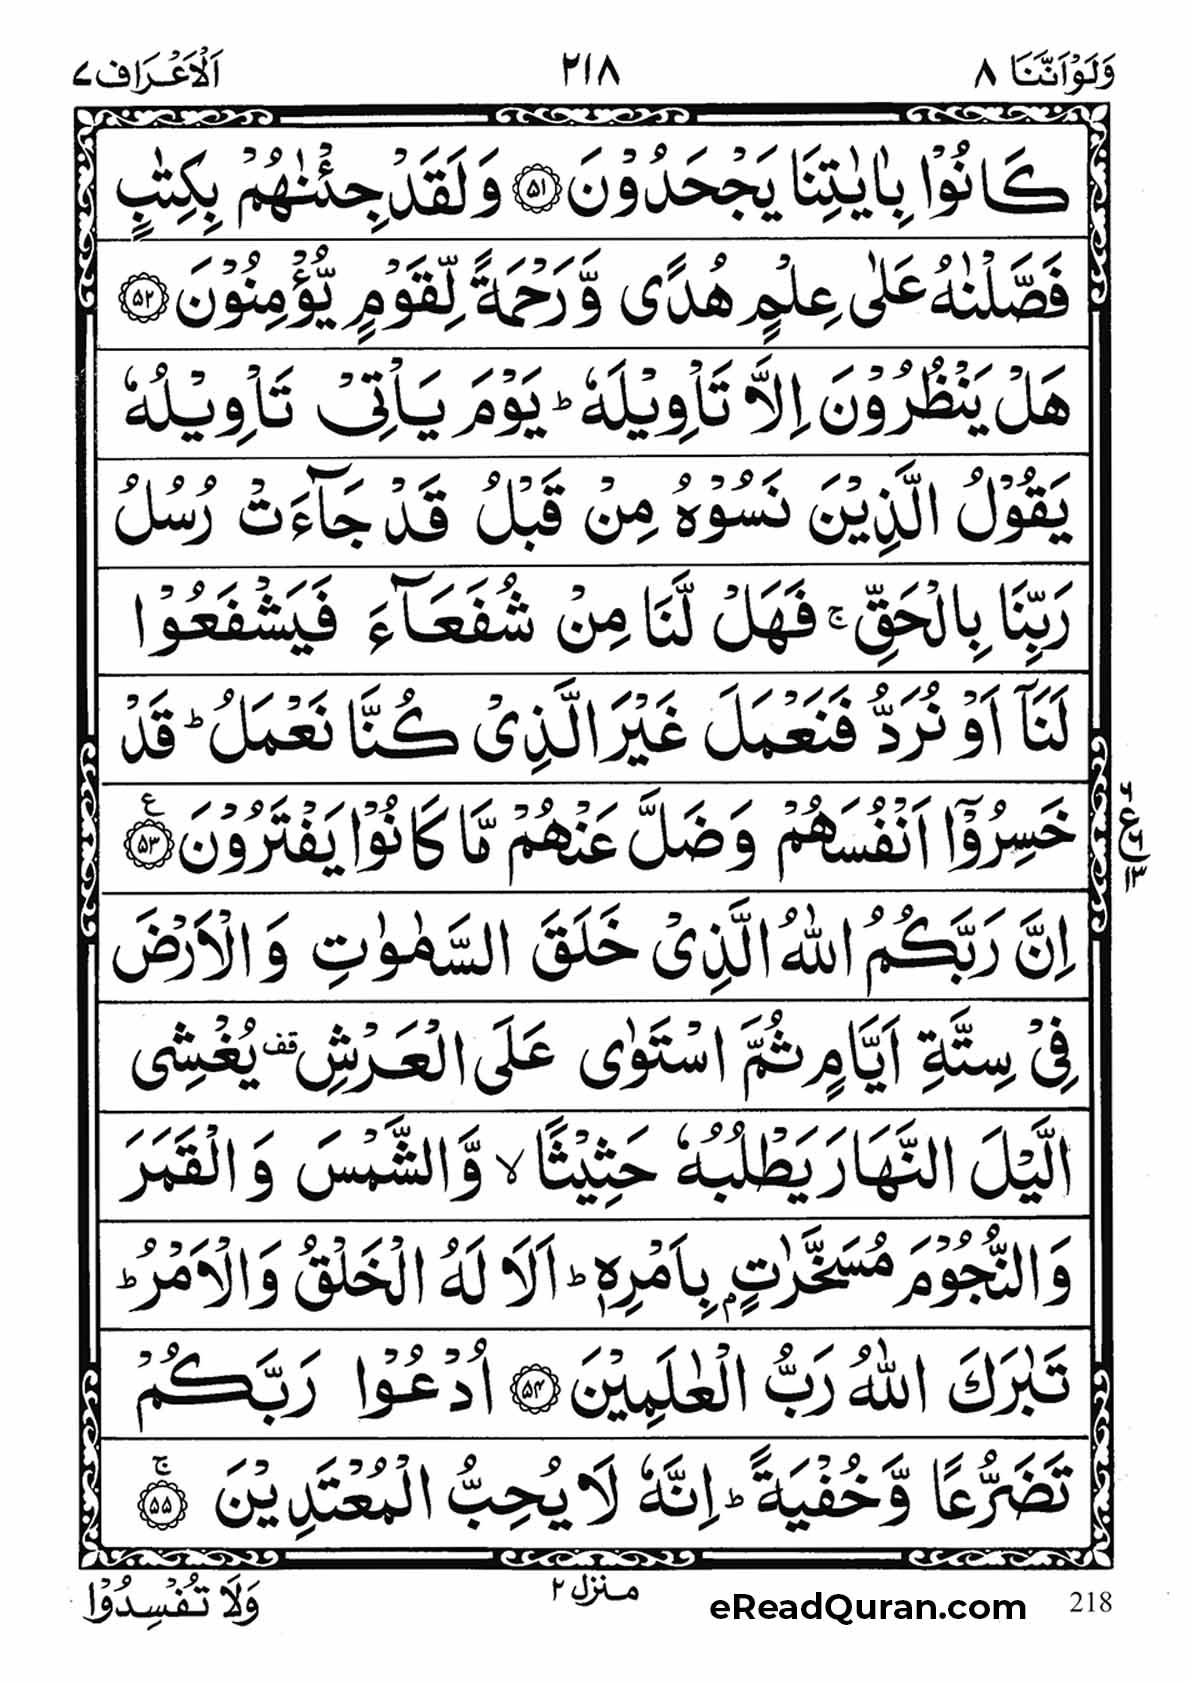 وَلَوْاَنَّنَا ٨ ٢١٨ اَلْاَعْرَاف ٧
كَانُوْا بِاٰيٰتِنَا يَجْحَدُوْنَ ﴿۵۱﴾ وَلَقَدْ جِئْنٰهُمْ بِكِتٰبٍ
فَصَّلْنٰهُ عَلٰى عِلْمٍ هُدًى وَّرَحْمَةً لِّقَوْمٍ يُّؤْمِنُوْنَ ﴿۵۲﴾
هَلْ يَنْظُرُوْنَ اِلَّا تَاْوِيْلَهٗ ؕ يَوْمَ يَاْتِيْ تَاْوِيْلُهٗ
يَقُوْلُ الَّذِيْنَ نَسُوْهُ مِنْ قَبْلُ قَدْ جَآءَتْ رُسُلُ
رَبِّنَا بِالْحَقِّ ۚ فَهَلْ لَّنَا مِنْ شُفَعَآءَ فَيَشْفَعُوْا
لَنَآ اَوْ نُرَدُّ فَنَعْمَلَ غَيْرَ الَّذِيْ كُنَّا نَعْمَلُ ؕ قَدْ
خَسِرُوْٓا اَنْفُسَهُمْ وَضَلَّ عَنْهُمْ مَّا كَانُوْا يَفْتَرُوْنَ ﴿۵۳﴾ ع
اِنَّ رَبَّكُمُ اللّٰهُ الَّذِيْ خَلَقَ السَّمٰوٰتِ وَالْاَرْضَ
فِيْ سِتَّةِ اَيَّامٍ ثُمَّ اسْتَوٰى عَلَى الْعَرْشِ قف يُغْشِى
الَّيْلَ النَّهَارَ يَطْلُبُهٗ حَثِيْثًا ۙ وَّالشَّمْسَ وَالْقَمَرَ
وَالنُّجُوْمَ مُسَخَّرٰتٍۭ بِاَمْرِهٖ ؕ اَلَا لَهُ الْخَلْقُ وَالْاَمْرُ ؕ
تَبٰرَكَ اللّٰهُ رَبُّ الْعٰلَمِيْنَ ﴿۵۴﴾ اُدْعُوْا رَبَّكُمْ
تَضَرُّعًا وَّخُفْيَةً ؕ اِنَّهٗ لَا يُحِبُّ الْمُعْتَدِيْنَ ﴿۵۵﴾ ۚ
وَلَا تُفْسِدُوْا منزل ٢ eReadQuran.com 218